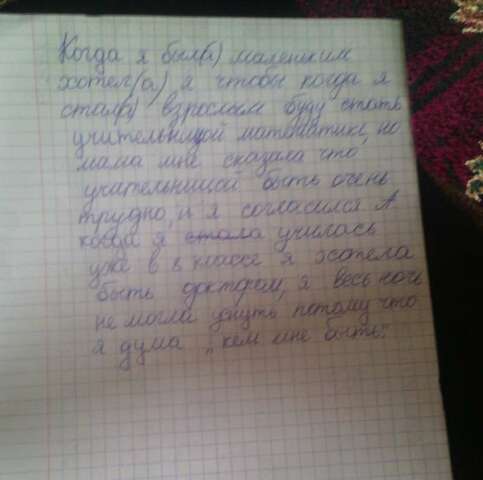 Когда я был(а) маленьким
хотел(а) я чтобы когда я
стал(а) взрослым буду стать
учительницой математике, но
мама мне сказала что
учательницой быть очень
трудно, и я согласился А
когда я стала училась
уже в 8 классе я хотела
быть доктором, я весь ночь
не могла уснуть потому что
я дума „кем мне быть."